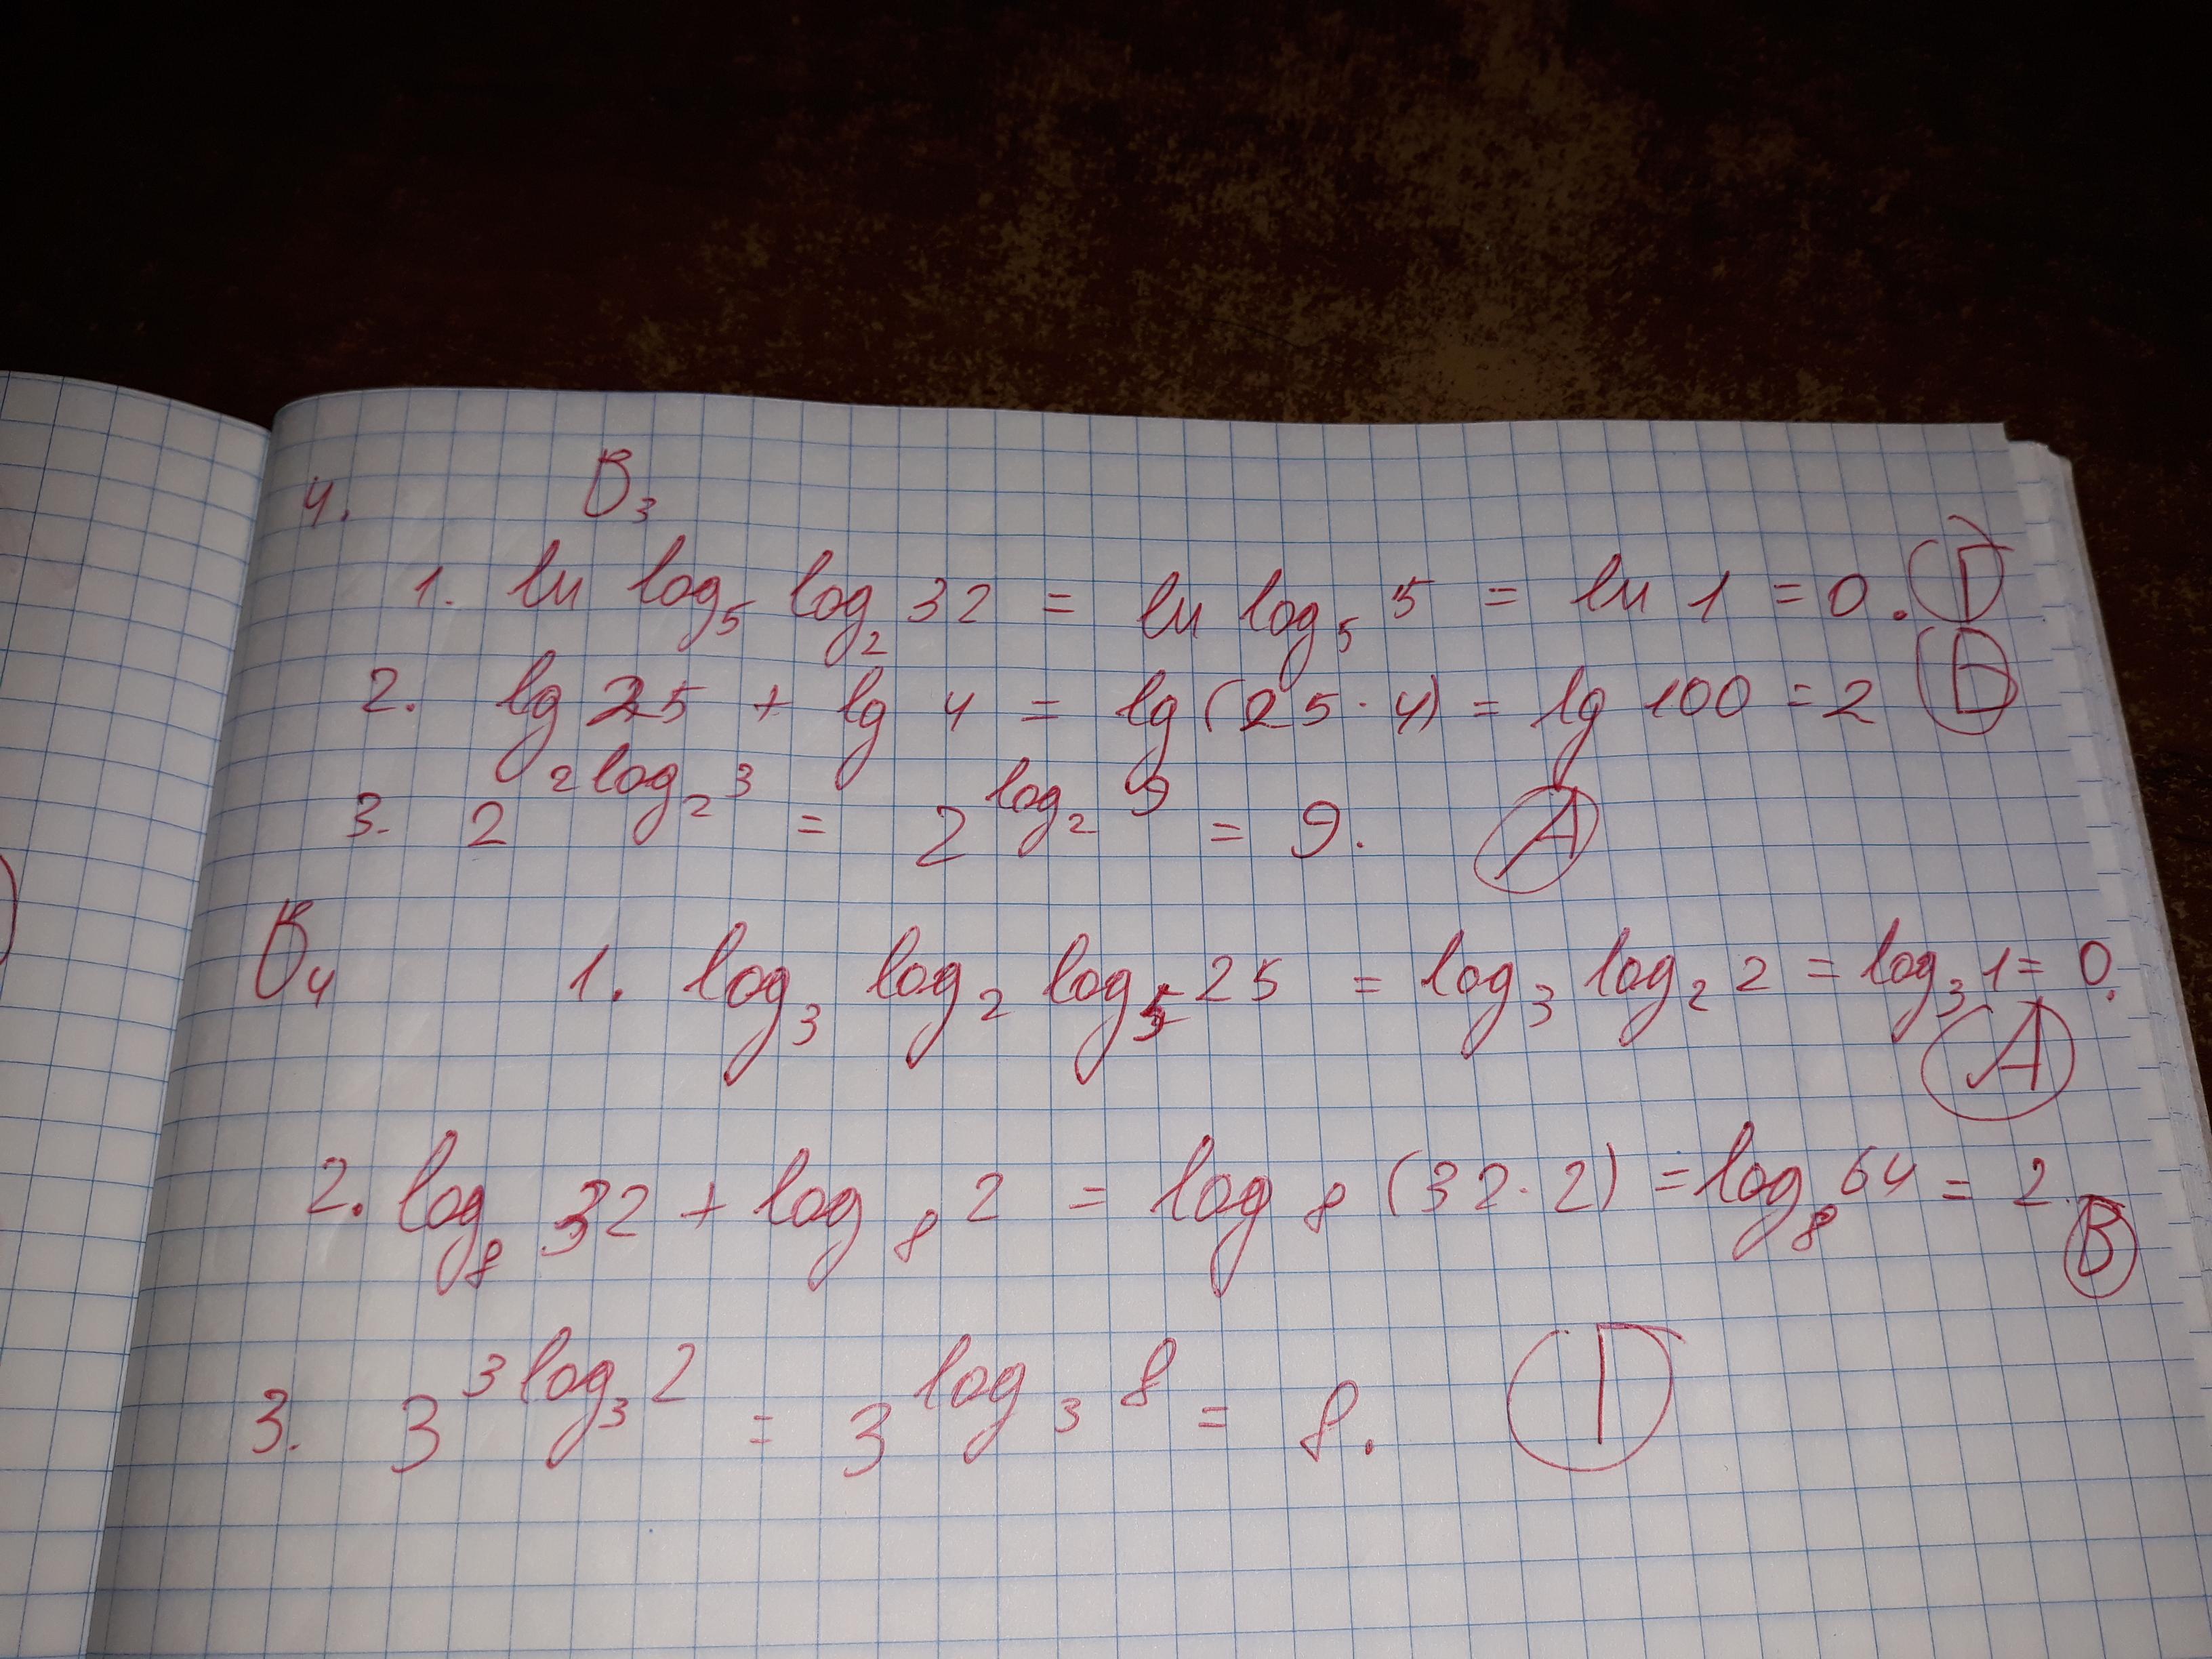 4. В₃
1. ln log₅ log₂ 32 = ln log₅ 5 = ln 1 = 0. Г
2. lg 25 + lg 4 = lg (25 · 4) = lg 100 = 2
3. 2^(2 log₂ 3) = 2^(log₂ 9) = 9. А
В₄ 1. log₃ log₂ log₅ 25 = log₃ log₂ 2 = log₃ 1 = 0.
А
2. log₈ 32 + log₈ 2 = log₈ (32 · 2) = log₈ 64 = 2.
В
3. 3^(3 log₃ 2) = 3^(log₃ 8) = 8. Г